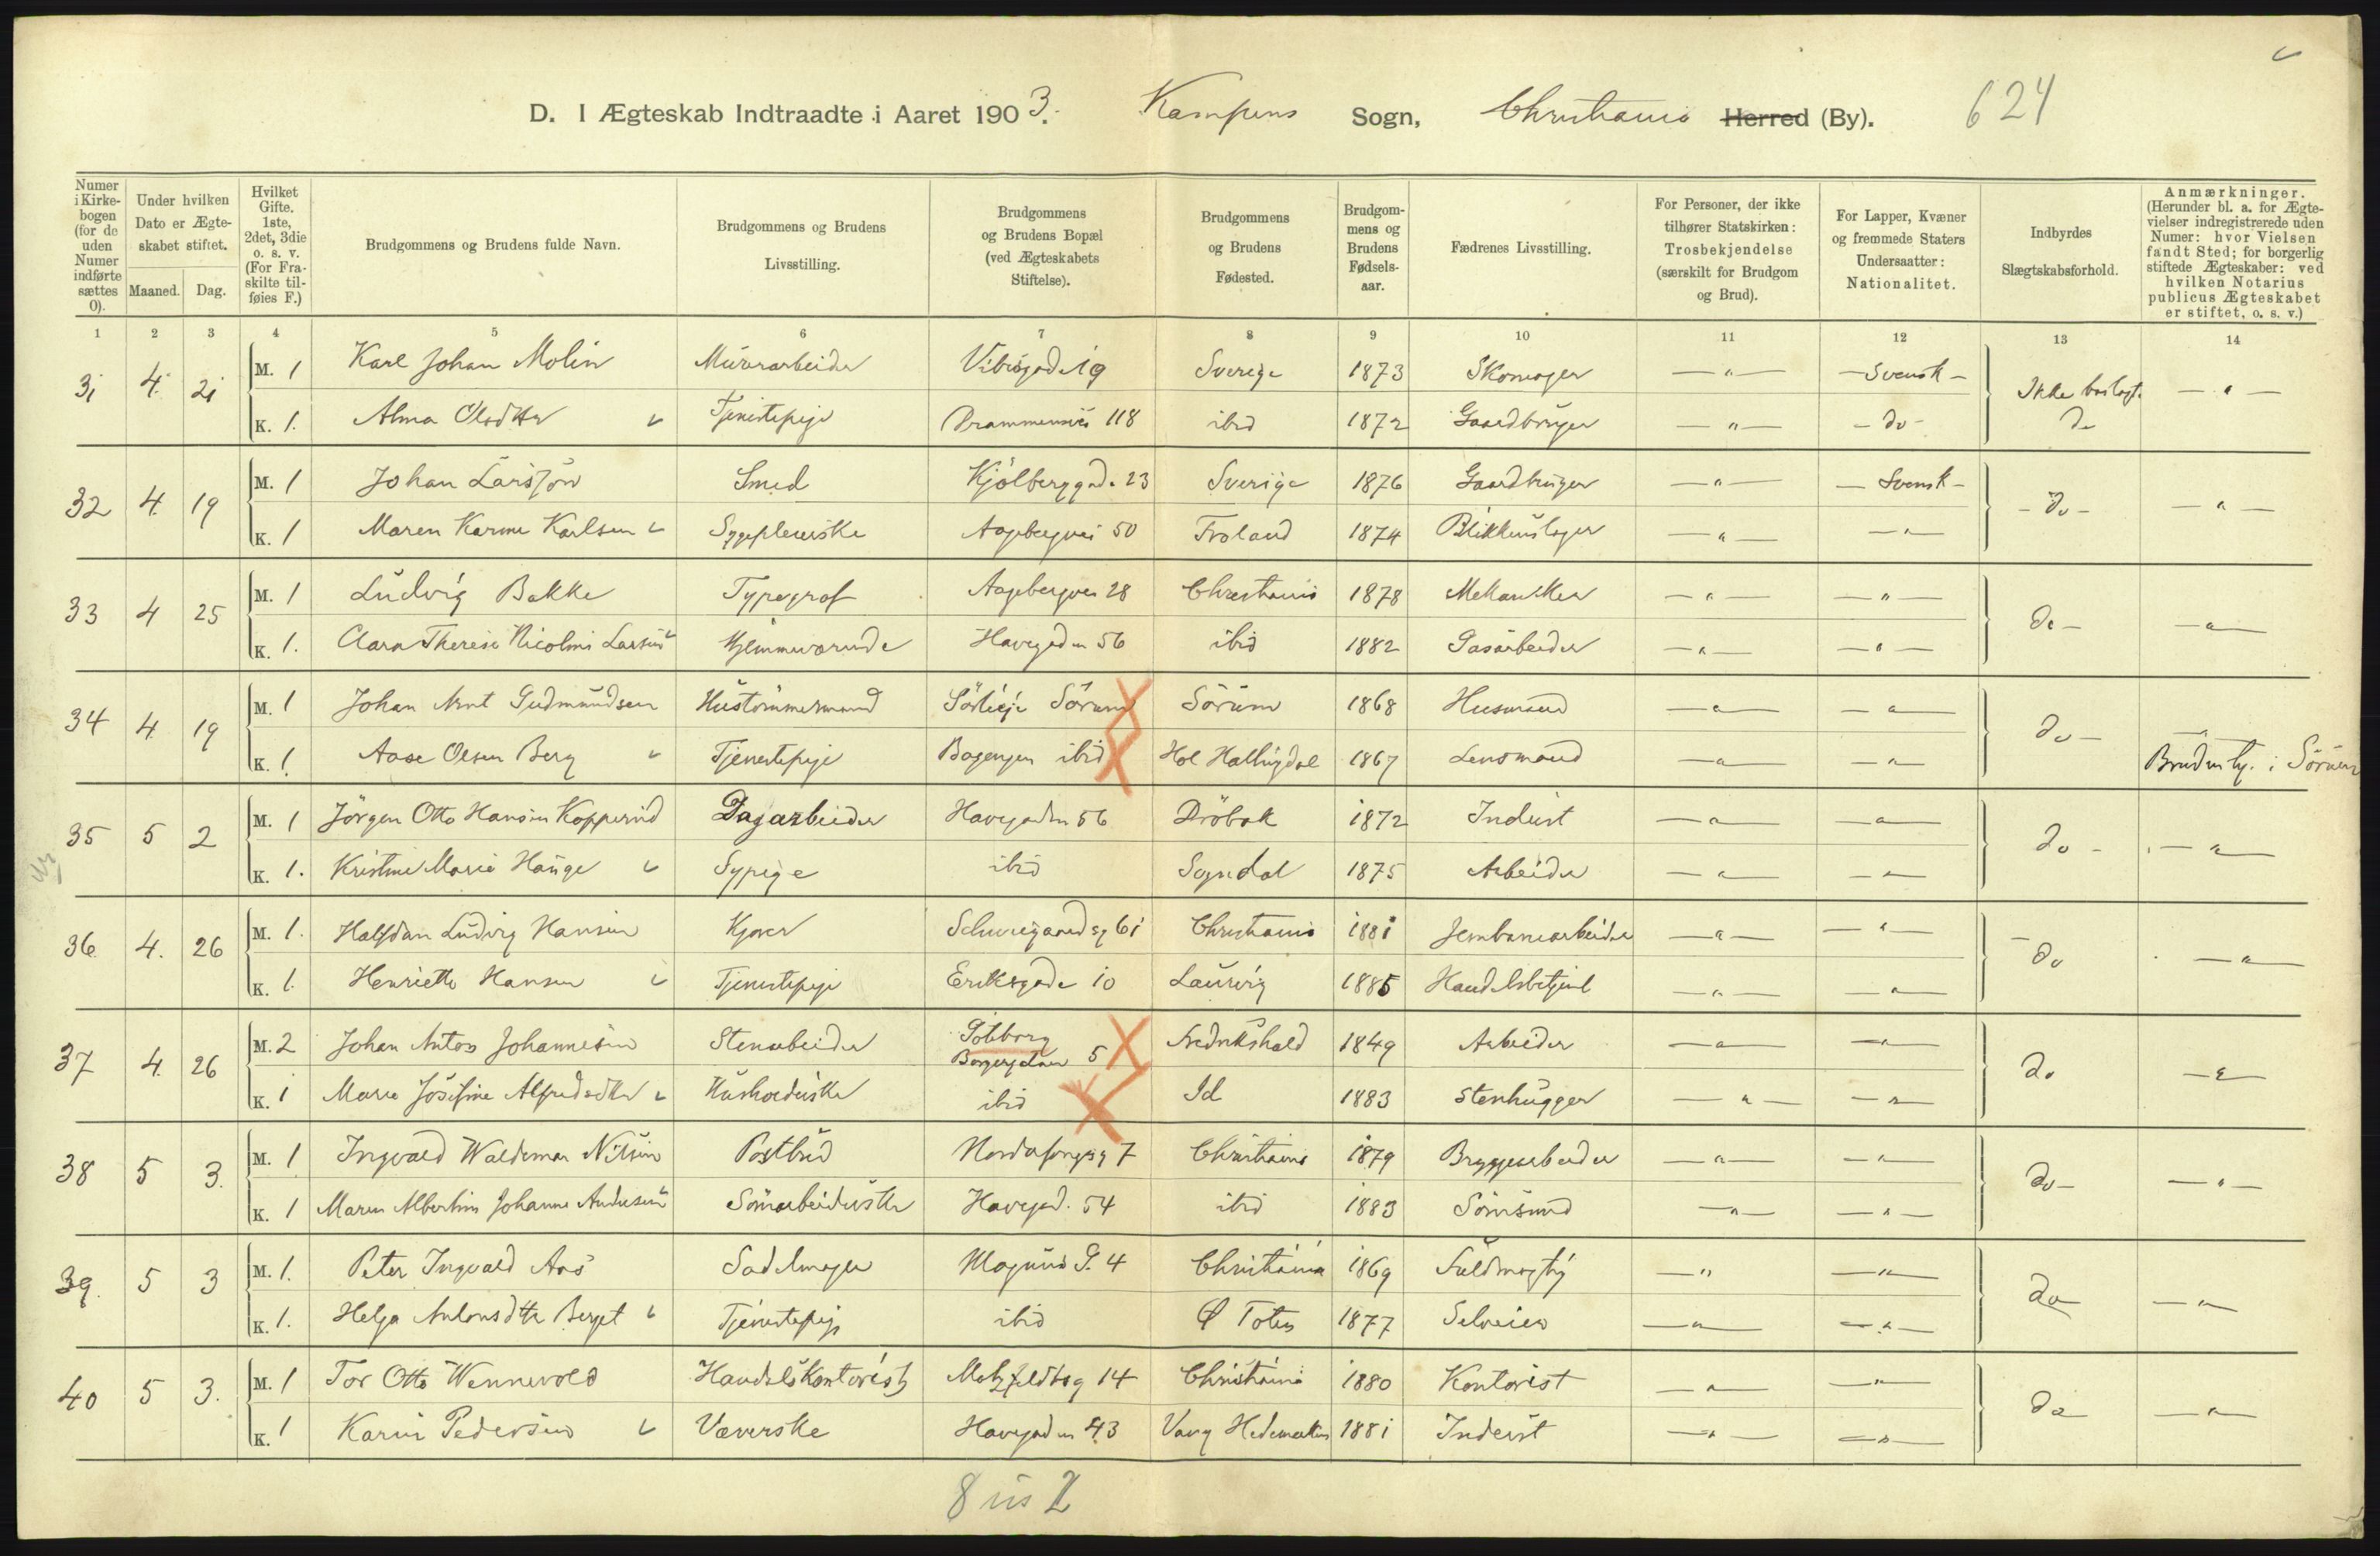 D. I Ægteskab Indtraadte i Aaret 1903. Kampens Sogn, Christiania Herred (By). 624
Numer i Kirkebogen (for de uden Numer indførte sættes 0).
Under hvilken Dato er Ægteskabet stiftet.
Maaned. Dag.
Hvilket Gifte. 1ste, 2det, 3die o. s. v. (For Fraskilte tilføies F.)
Brudgommens og Brudens fulde Navn.
Brudgommens og Brudens Livsstilling.
Brudgommens og Brudens Bopæl (ved Ægteskabets Stiftelse).
Brudgommens og Brudens Fødested.
Brudgommens og Brudens Fødselsaar.
Fædrenes Livsstilling.
For Personer, der ikke tilhører Statskirken: Trosbekjendelse (særskilt for Brudgom og Brud).
For Lapper, Kvæner og fremmede Staters Undersaatter: Nationalitet.
Indbyrdes Slægtskabsforhold.
Anmærkninger. (Herunder bl. a. for Ægtevielser indregistrerede uden Numer: hvor Vielsen fandt Sted; for borgerlig stiftede Ægteskaber: ved hvilken Notarius publicus Ægteskabet er stiftet, o. s. v.)
1 2 3 4 5 6 7 8 9 10 11 12 13 14
31 4 21 M. 1 Karl Johan Molin Murarbeider Vibesgade 19 Sverige 1873 Skomager — " — — Svensk — Ikke beslegt. — " —
K. 1. Alma Olsdtter Tjenestepige Drammensvei 118 ibid 1872 Gaardbruger — " — — do — do
32 4 19 M. 1 Johan Larsson Smed Kjölberggade 23 Sverige 1876 Gaardbruger — " — — Svensk — — do — — " —
K. 1 Maren Karine Karlsen Sygepleierske Aagebergvei 50 Froland 1874 Blikkenslager — " — — " —
33 4 25 M. 1 Ludvig Bakke Typograf Aagebergvei 28 Christiania 1878 Mekaniker — " — — " — do — — " —
K. 1. Clara Therese Nicoline Larsen Hjemmeværende Havegaden 56 ibid 1882 Gasarbeider — " — — " —
34 4 19 M. 1 Johan Arnt Gudmundsen Hustömmermand Sörum Sörum 1868 Husmand — " — — " — do — — " —
K. 1 Aase Olsen Berg Tjenestepige ibid Hol Hallingdal 1867 Lensmand — " — — " — i Sörum
35 5 2 M. 1 Jörgen Otto Hansen Kopperud Dagarbeider Havegaden 56 Dröbak 1872 Inderst — " — — " — do — — " —
K. 1. Kristine Marie Hauge Sypige ibid Sogndal 1875 Arbeider — " — — " —
36 4. 26 M. 1. Halfdan Ludvig Hansen Kjører Schweigaardsg 61 Christiania 1881 Jernbanearbeider — " — — " — do — " —
K. 1. Henriette Hansen Tjenestepige Eriksgade 10 Laurvig 1885 Handelsbetjent — " — — " —
37 4. 26 M. 2 Johan Anton Johannesen Stenarbeider Göteborg 5 Fredrikshald 1849 Arbeider — " — — " — do — " —
K. 1 Marie Josefine Alfredsdtter Husholderske ibid Id 1883 Stenhugger — " — — " —
38 5 3. M. 1 Ingvald Waldemar Nilsen Postbud Nordahsgg 7 Christiania 1879 Bryggearbeider — " — — " — do — — " —
K. 1 Maren Albertine Johanne Andersen Sömarbeiderske Havegad. 54 ibid 1883 Sömsmed — " — — " —
39. 5 3 M. 1. Peter Ingvald Aas Sadelmager Magnus G. 4 Christiania 1869 Fuldmægtig — " — — " — do — " —
K. 1. Helga Antonsdtter Berget Tjenestepige ibid Ø Toten 1877 Selveier — " — — " —
40 5 3. M. 1 Tor Otto Wennevold Handelskontorist Motzfeldtsg 14 Christiania 1880 Kontorist — " — — " — do — " —
K. 1 Karen Pedersen Væverske Havegaden 43 Vang Hedemarken 1881 Inderst — " — — " —